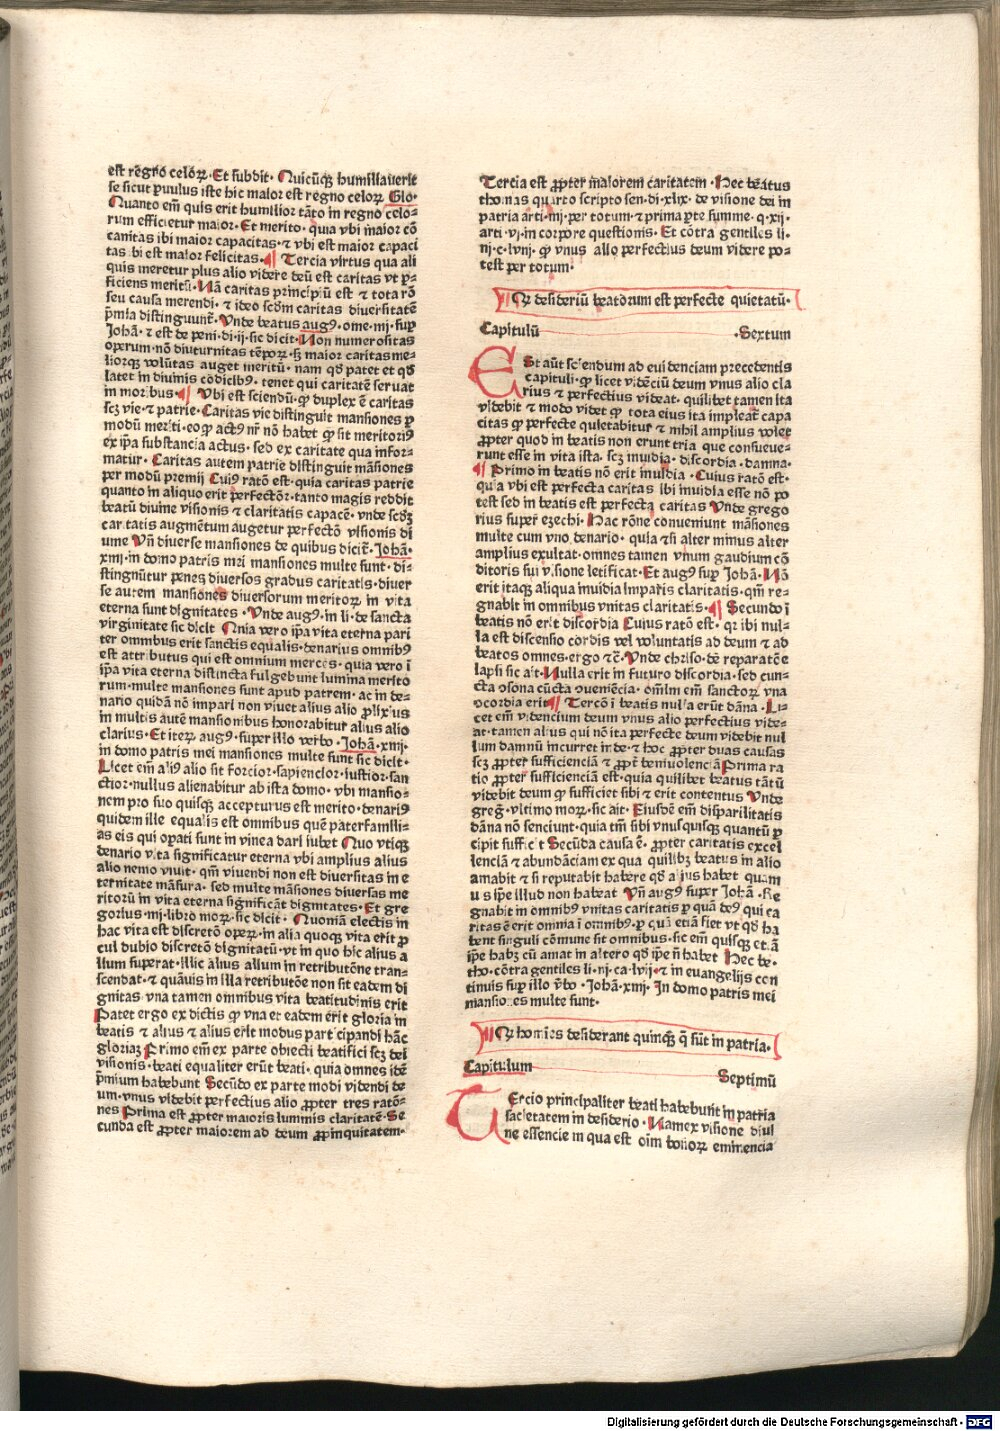 est regno celoꝝ. Et subdit. Quicūqꝫ humiliauerit
se sicut puulus iste hic maior est regno celoꝝ Glo.
Quanto em̄ quis erit humilior tāto in regno celo-
rum efficietur maior. Et merito. quia vbi maior cō
canitas ibi maior capacitas. ⁊ vbi est maior capaci
tas bi est maior felicitas. ¶ Tercia virtus qua ali
quis meretur plus alio videre deū est caritas vt p-
ficiens meritū. Nā caritas principiū est ⁊ tota rō
seu causa merendi. ⁊ ideo scdm caritas diuersitatē
p̄mia distinguunt̄. Vnde beatus aug⁹. ome. iij. sup
Johā. ⁊ est de peni. di. ij. sic dicit. Non numerositas
operum. nō diuturnitas tēpoꝝ. sꝫ maior caritas me-
liorqꝫ volūtas auget meritū. nam qd patet et qd
latet in diuinis codicib⁹. tenet qui caritatē seruat
in moribus. ¶ Vbi est sciendū. ꝙ duplex ē caritas
scꝫ vie. ⁊ patrie. Caritas vie distinguit mansiones ꝑ
modū meriti. eo ꝙ act⁹ nr̄ nō habet ꝙ sit meritori⁹
ex ipa substancia actus. sed ex caritate qua infor-
matur. Caritas autem patrie distinguit māsiones
per modū premij Cui⁹ ratō est. quia caritas patrie
quanto in aliquo erit perfectior. tanto magis reddit
beatū diuine visionis ⁊ claritatis capacē. vnde scdꝫ
caritatis augmētum augetur perfectō visionis di
uine Vn̄ diuerse mansiones de quibus dicit̄. Johā.
xiiij. in domo patris mei mansiones multe sunt. di-
stingnūtur penes diuersos gradus caritatis. diuer
se autem mansiones diuersorum meritoꝝ in vita
eterna sunt dignitates. Vnde aug⁹. in li. de sancta
virginitate sic dicit Quia vero ipa vita eterna pari
ter omnibus erit sanctis equalis. denarius omnib⁹
est attributus qui est omnium merces. quia vero i
ipa vita eterna distincta fulgebunt lumina merito
rum. multe mansiones sunt apud patrem. ac in de-
nario quidā nō impari non viuet alius alio prolixius
in multis autē mansionibus honorabitur alius alio
clarius. Et iteꝝ aug⁹. super illo verbo. Johā. xiiij.
in domo patris mei mansiones multe sunt sic dicit.
Licet em̄ ali⁹ alio sit forcior. sapiencior. iustior. san
ctior. nullus alienabitur ab ista domo. vbi mansio-
nem pro suo quisqꝫ accepturus est merito. denari⁹
quidem ille equalis est omnibus quē paterfamili-
as eis qui opati sunt in vinea dari iubet Quo vtiqꝫ
denario vita significatur eterna vbi amplius alius
alio nemo viuit. qm̄ viuendi non est diuersitas in e
ternitate māsura. sed multe māsiones diuersas me
ritorū in vita eterna significāt dignitates. Et gre
gorius. iiij. libro moꝝ. sic dicit. Quoniā electis in
hac vita est discretō opeꝝ. in alia quoqꝫ vita erit ꝓ
cul dubio discretō dignitatū. vt in quo hic alius a
lium superat. illic alius alium in retributōne tran-
scendat. ⁊ quāuis in illa retributōe non sit eadem di
gnitas. vna tamen omnibus vita beatitudinis erit
Patet ergo ex dictis ꝙ vna et eadem erit gloria in
beatis ⁊ alius ⁊ alius erit modus participandi hāc
gloriaꝫ Primo em̄ ex parte obiecti beatifici scꝫ dei
visionis. beati equaliter erūt beati. quia omnes idē
p̄mium habebunt Secūdo ex parte modi videndi de
um. vnus videbit perfectius alio ꝓpter tres ratō-
nes Prima est ꝓpter maioris luminis claritatē. Se
cunda est ꝓpter maiorem ad deum ꝓpinquitatem.
Tercia est ꝓpter maiorem caritatem. Hec beatus
thomas quarto scripto sen. di. xlix. de visione dei in
patria arti. iij. per totum. ⁊ prima pte summe. q. xij.
arti. vj. in corpore questionis. Et cōtra gentiles li.
iij. c. lviij. ꝙ vnus alio perfectius deum videre po-
test per totum.
¶ Qꝛ desideriū beatorum est perfecte quietatū.
Capitulū .Sextum
Est aūt sciendum ad euidenciam precedentis
capituli. ꝙ licet videnciū deum vnus alio cla
rius ⁊ perfectius videat. quilibet tamen ita
videbit ⁊ modo videt ꝙ tota eius ita impleat̄ capa
citas ꝙ perfecte quietabitur ⁊ nihil amplius volet
ꝓpter quod in beatis non erunt tria que consueue-
runt esse in vita ista. scꝫ inuidia. discordia. damna.
¶ Primo in beatis nō erit inuidia. Cuius ratō est.
quia vbi est perfecta caritas ibi inuidia esse nō po
test sed in beatis est perfecta caritas Vnde grego
rius super ezechi. Hac rōne conueniunt māsiones
multe cum vno denario. quia ⁊si alter minus alter
amplius exultat. omnes tamen vnum gaudium cō
ditoris sui visione letificat. Et aug⁹ sup Johā. Nō
erit itaqꝫ aliqua inuidia imparis claritatis. qm̄ re-
gnabit in omnibus vnitas claritatis. ¶ Secundo ī
beatis nō erit discordia Cuius ratō est. qꝛ ibi nul-
la est discensio cordis vel voluntatis ad deum ⁊ ad
beatos omnes. ergo ⁊c̄. Vnde chriso. de reparatōe
lapsi sic ait. Nulla erit in futuro discordia. sed cun-
cta ꝯsona cūcta ꝯueniēcia. omniū em̄ sanctoꝝ vna
ꝯcordia erit ¶ Tercō ī beatis nulla erūt dāna. Li-
cet em̄ videncium deum vnus alio perfectius vide-
at. tamen alius qui nō ita perfecte deum videbit nul
lum damnū incurret inde. ⁊ hoc ꝓpter duas causas
scꝫ ꝓpter sufficienciā ⁊ ꝓpt̄ beniuolenciā Prima ra
tio ꝓpter sufficienciā est. quia quilibet beatus tātū
videbit deum ꝙ sufficiet sibi ⁊ erit contentus Vnde
greḡ. vltimo moꝝ. sic ait. Eiusdē em̄ disparilitatis
dāna nō senciunt. quia tm̄ sibi vnusquisqꝫ quantū ꝑ
cipit sufficit Secūda causa ē. ꝓpter caritatis excel
lenciā ⁊ abundāciam ex qua quilibꝫ beatus in alio
amabit ⁊ si reputabit habere qd alius habet quam
uis ipse illud non habeat Vn̄ aug⁹ super Johā. Re
gnabit in omnib⁹ vnitas caritatis ꝑ quā de⁹ qui ca
ritas ē erit omnia ī omnib⁹. ꝑ quā etiā fiet vt qd ha
bent singuli cōmune sit omnibus. sic em̄ quisqꝫ et.ā
ip̄e habꝫ cū amat in altero qd ip̄e nō habet Hec be.
tho. cōtra gentiles li. iij. ca. lviij. ⁊ in euangelijs con
tinuis sup illo v̄bo. Johā. xiiij. In domo patris mei
mansiones multe sunt.
¶ Qꝛ homīes desiderant quinqꝫ q̄ sūt in patria.
Capitulum Septimū
Tercio principaliter beati habebunt in patria
sacietatem in desiderio. Nam ex visione diui
ne essencie in qua est oīm bonoꝝ eminencia
Digitalisierung gefördert durch die Deutsche Forschungsgemeinschaft - DFG